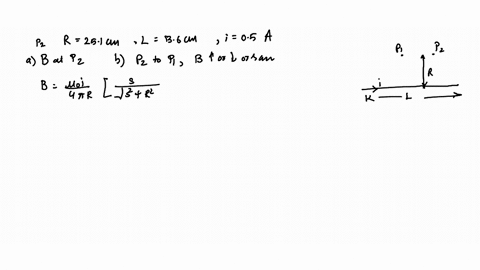 P2 R = 25.1 cm , L = 13.6 cm , i = 0.5 A
a) B at P2 b) P2 to P1 , B ↑ or ↓ or san
B = μ0i / 4πR [ s / √s²+R²
P1 P2
R
i
L